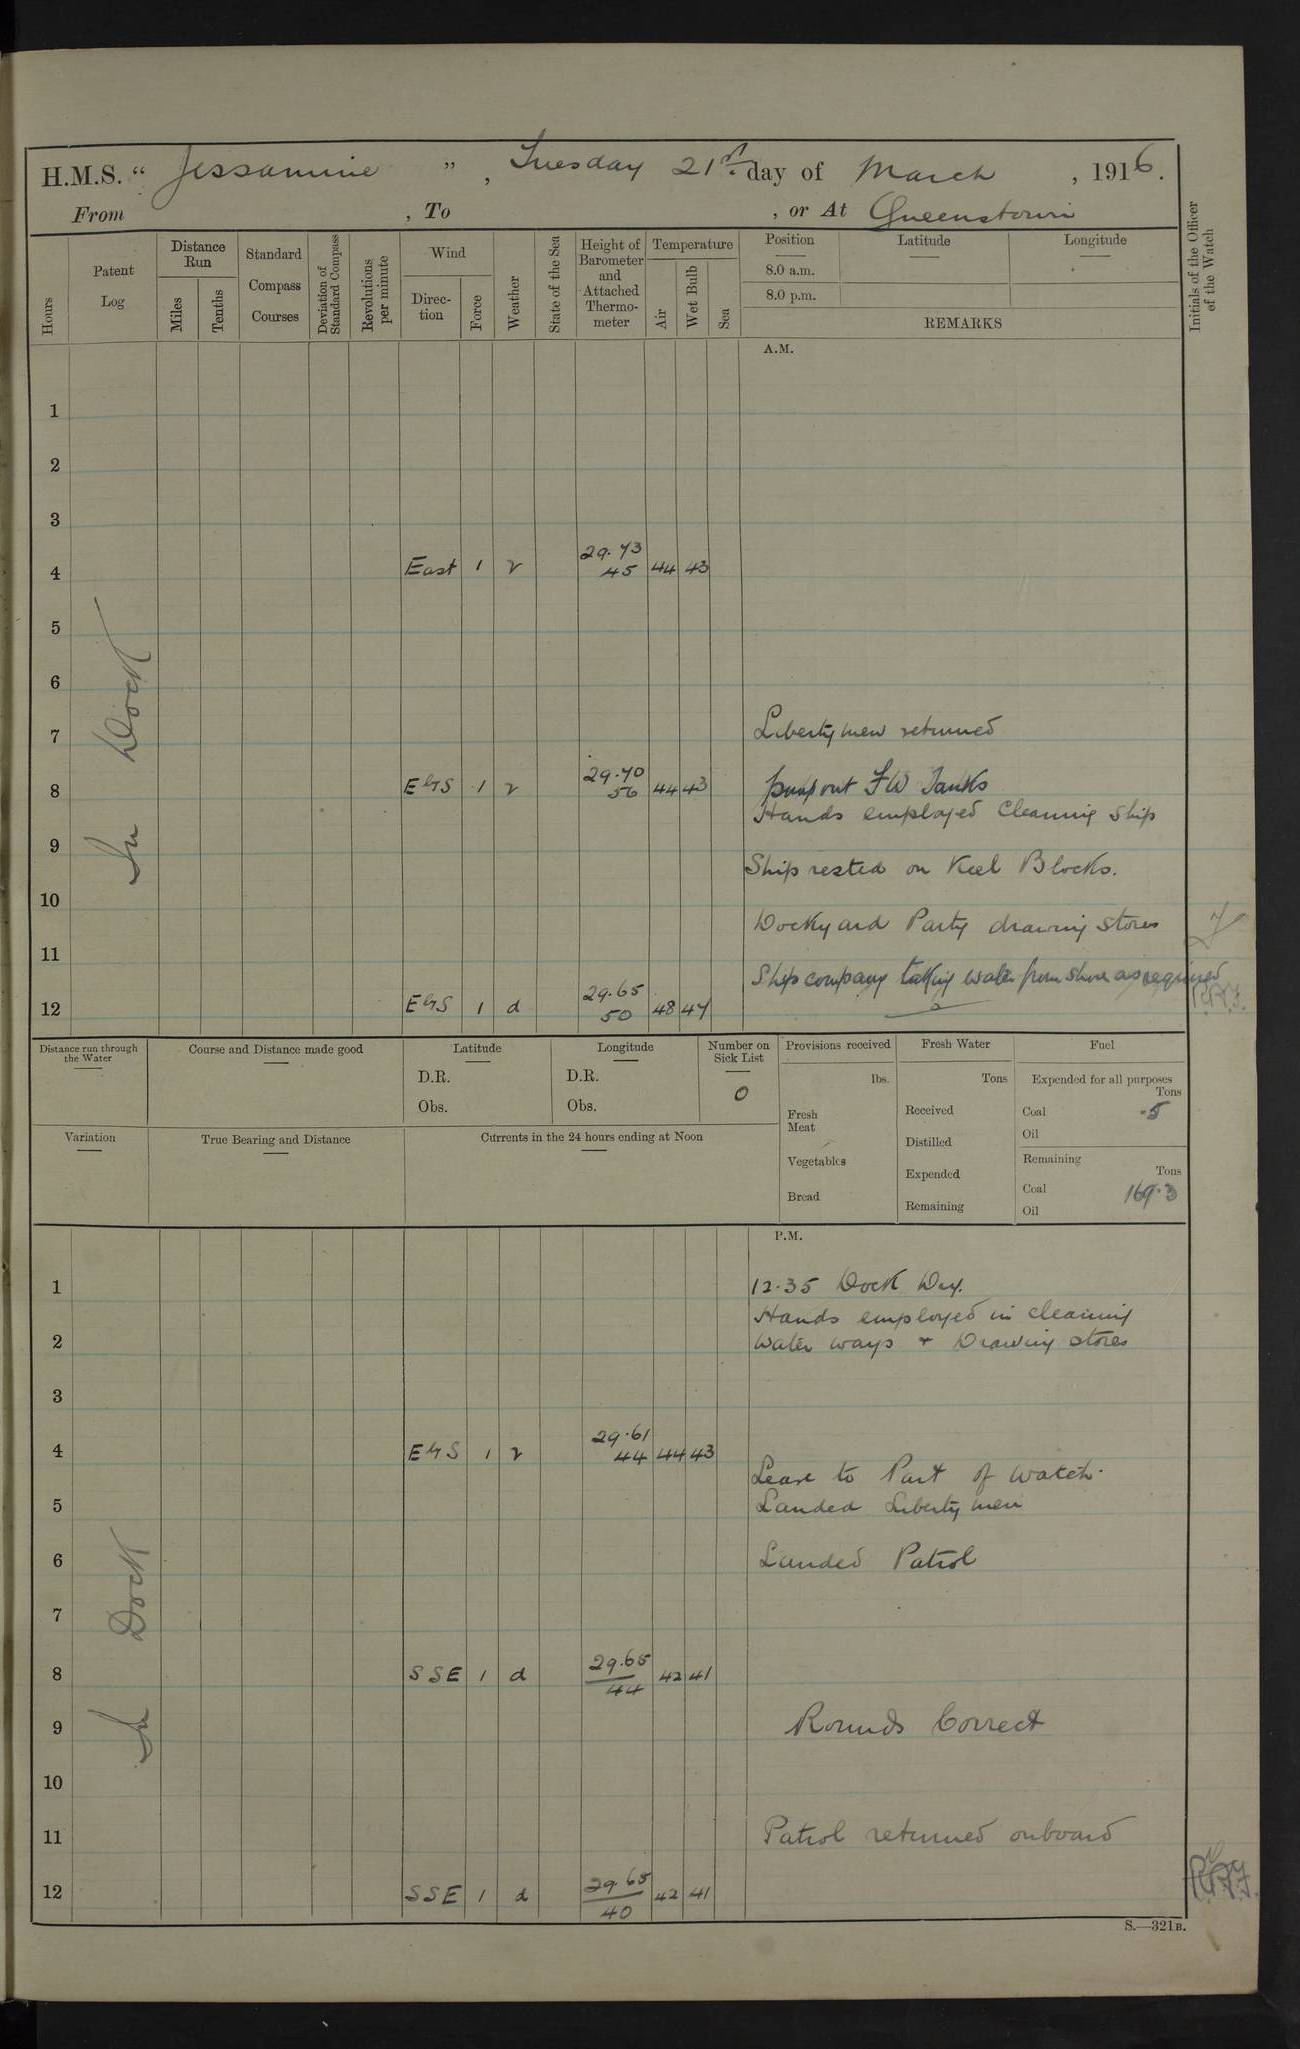 H.M.S. "Jessamine", Tuesday 21st day of March, 1916.
From , To , or At Queenstown
Hours
Patent Log
Distance Run
Miles
Tenths
Standard Compass Courses
Deviation of Standard Compass
Revolutions per minute
Wind
Direc-tion
Force
Weather
State of the Sea
Height of Barometer and Attached Thermo-meter
Temperature
Air
Wet Bulb
Sea
Position
Latitude
Longitude
8.0 a.m.
8.0 p.m.
REMARKS
Initials of the Officer of the Watch
A.M.
1
2
3
4 East 1 r 29.73 45 44 43
5
6
In Dock
7 Liberty men returned
8 E4S 1 r 29.70 56 44 43 pump out FW Tanks
Hands employed Cleaning Ship
9
Ship rested on Keel Blocks.
10
Dockyard Party drawing Stores
11
Ships company taking water from shore as required
12 E4S 1 d 29.65 50 48 47
Distance run through the Water
Course and Distance made good
Latitude
D.R.
Obs.
Longitude
D.R.
Obs.
Number on Sick List
0
Provisions received
lbs.
Fresh Meat
Vegetables
Bread
Fresh Water
Tons
Received
Distilled
Expended
Remaining
Fuel
Expended for all purposes
Tons
Coal .5
Oil
Remaining
Tons
Coal 169.3
Oil
Variation
True Bearing and Distance
Currents in the 24 hours ending at Noon
P.M.
1 12.35 Dock Dry.
Hands employed in cleaning
2 Water ways + Drawing stores
3
4 E4S 1 r 29.61 44 44 43
Leave to Part of Watch.
5 Landed Liberty men
6 Landed Patrol
In Dock
7
8 SSE 1 d 29.65 44 42 41
9 Rounds Correct
10
11 Patrol returned onboard
12 SSE 1 d 29.65 40 42 41
S.—321B.